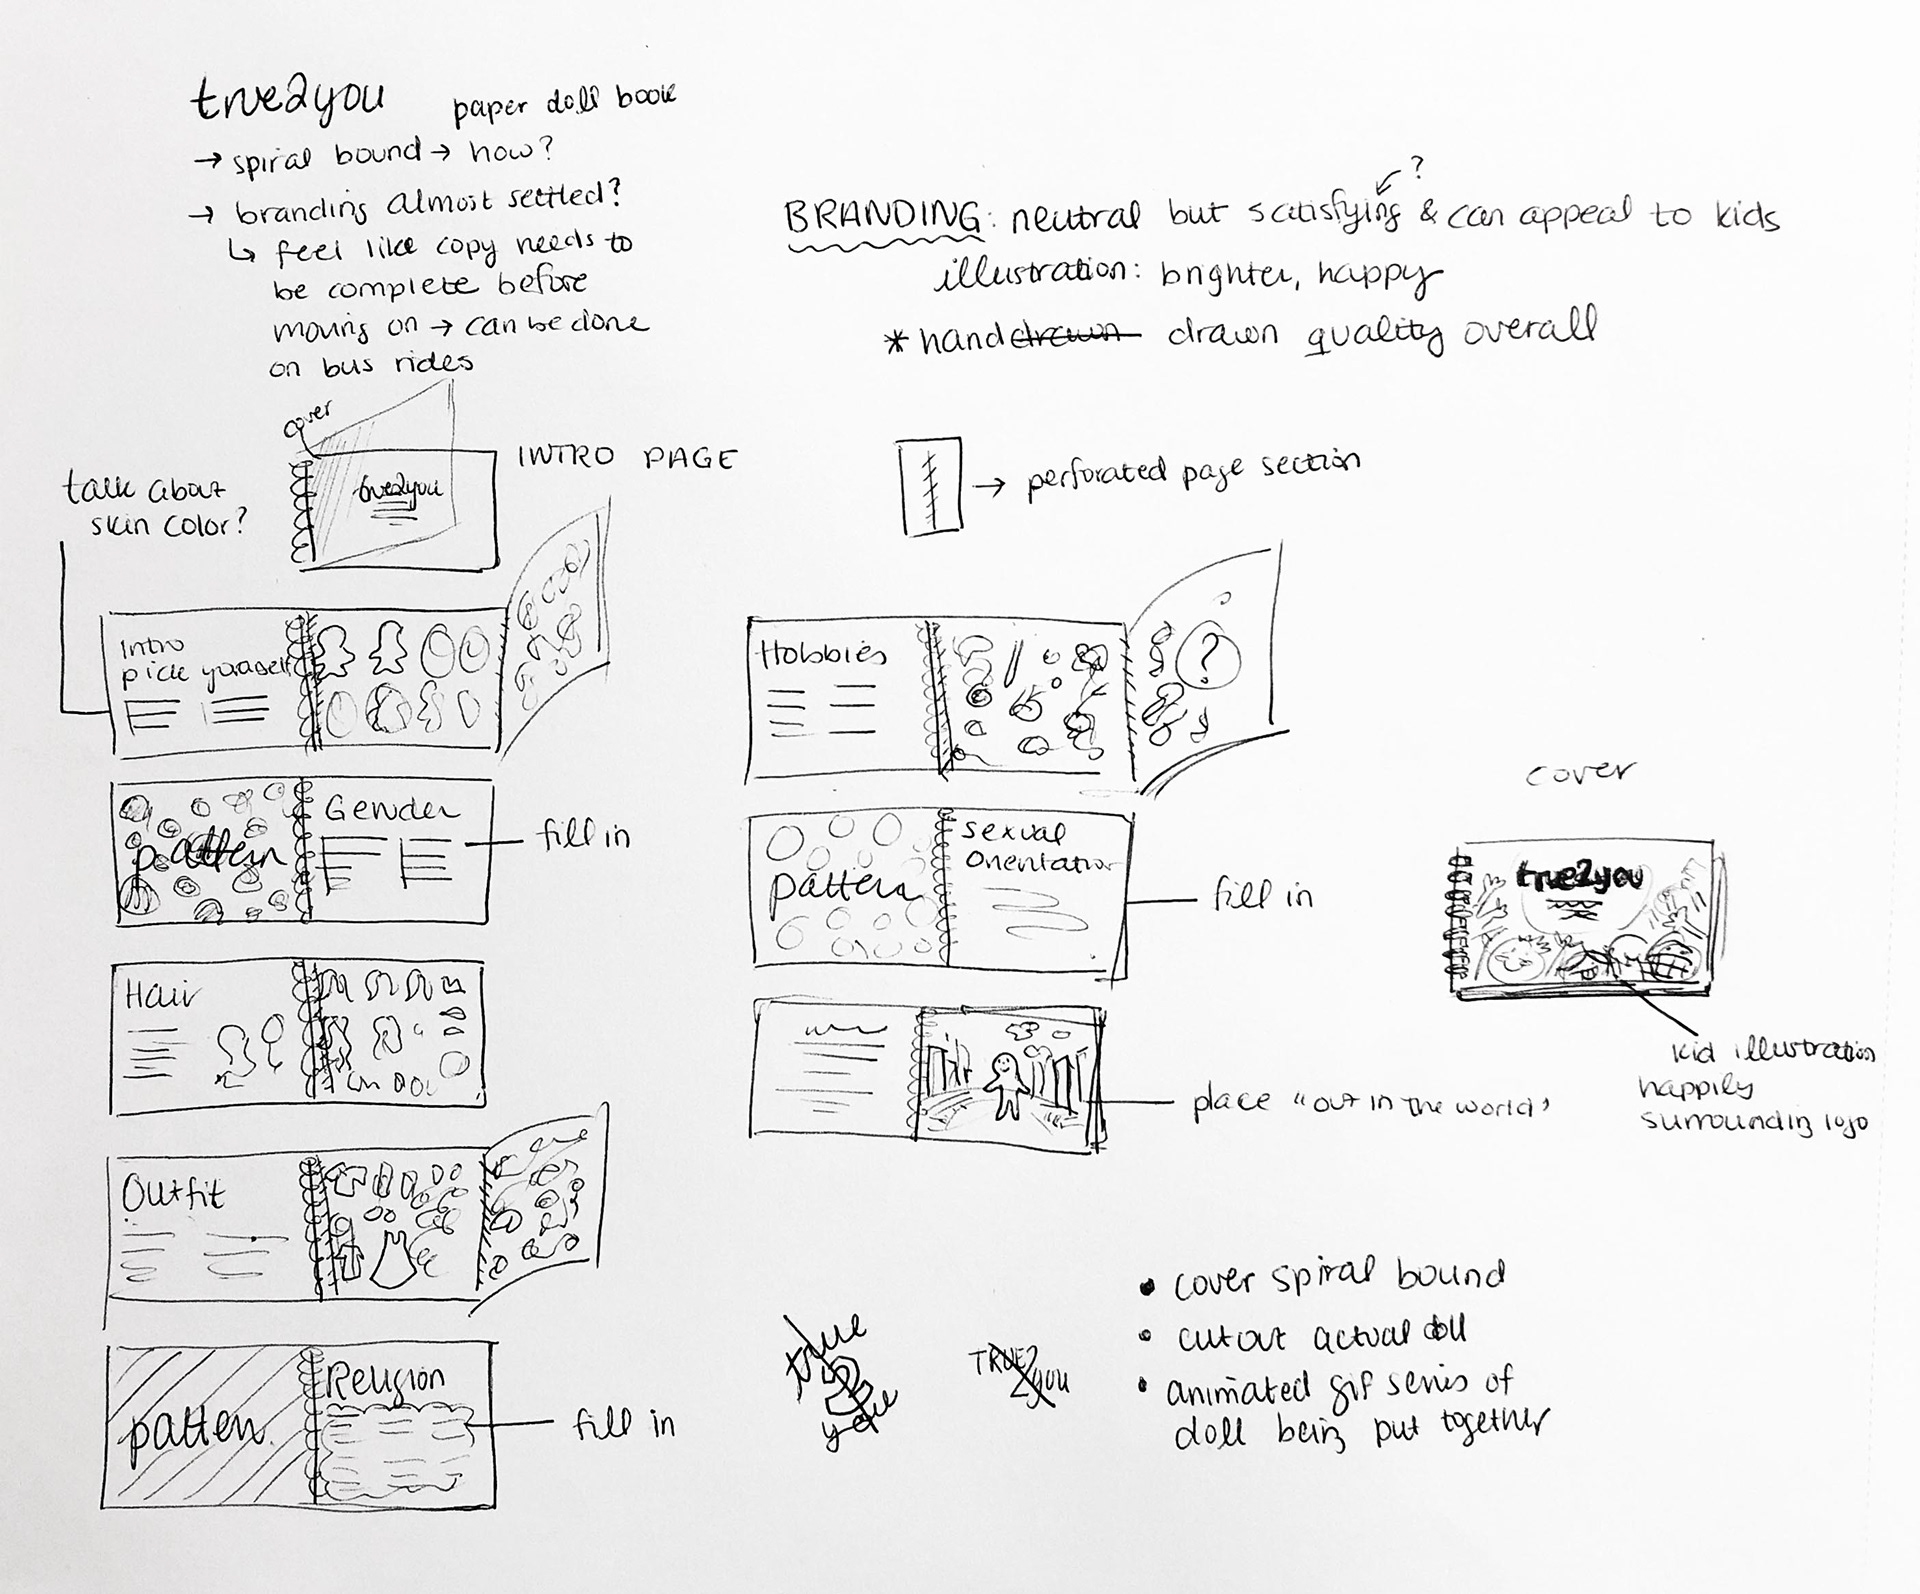 true2you
paper doll book
→ spiral bound → how?
→ branding almost settled?
↳ feel like copy needs to
be complete before
moving on → can be done
on bus rides
?
BRANDING: neutral but satisfying & can appeal to kids
illustration: brighter, happy
* hand drawn drawn quality overall
cover
true2you
INTRO PAGE
talk about
skin color?
→ perforated page section
Intro
pick yourself
pattern
Gender
fill in
Hair
Outfit
patten
Religion
fill in
Hobbies
?
pattern
sexual
orientation
fill in
place "out in the world"
cover
true2you
kid illustration
happily
surrounding logo
true
2
you
TRUE2
YOU
• cover spiral bound
• cutout actual doll
• animated gif series of
doll being put together